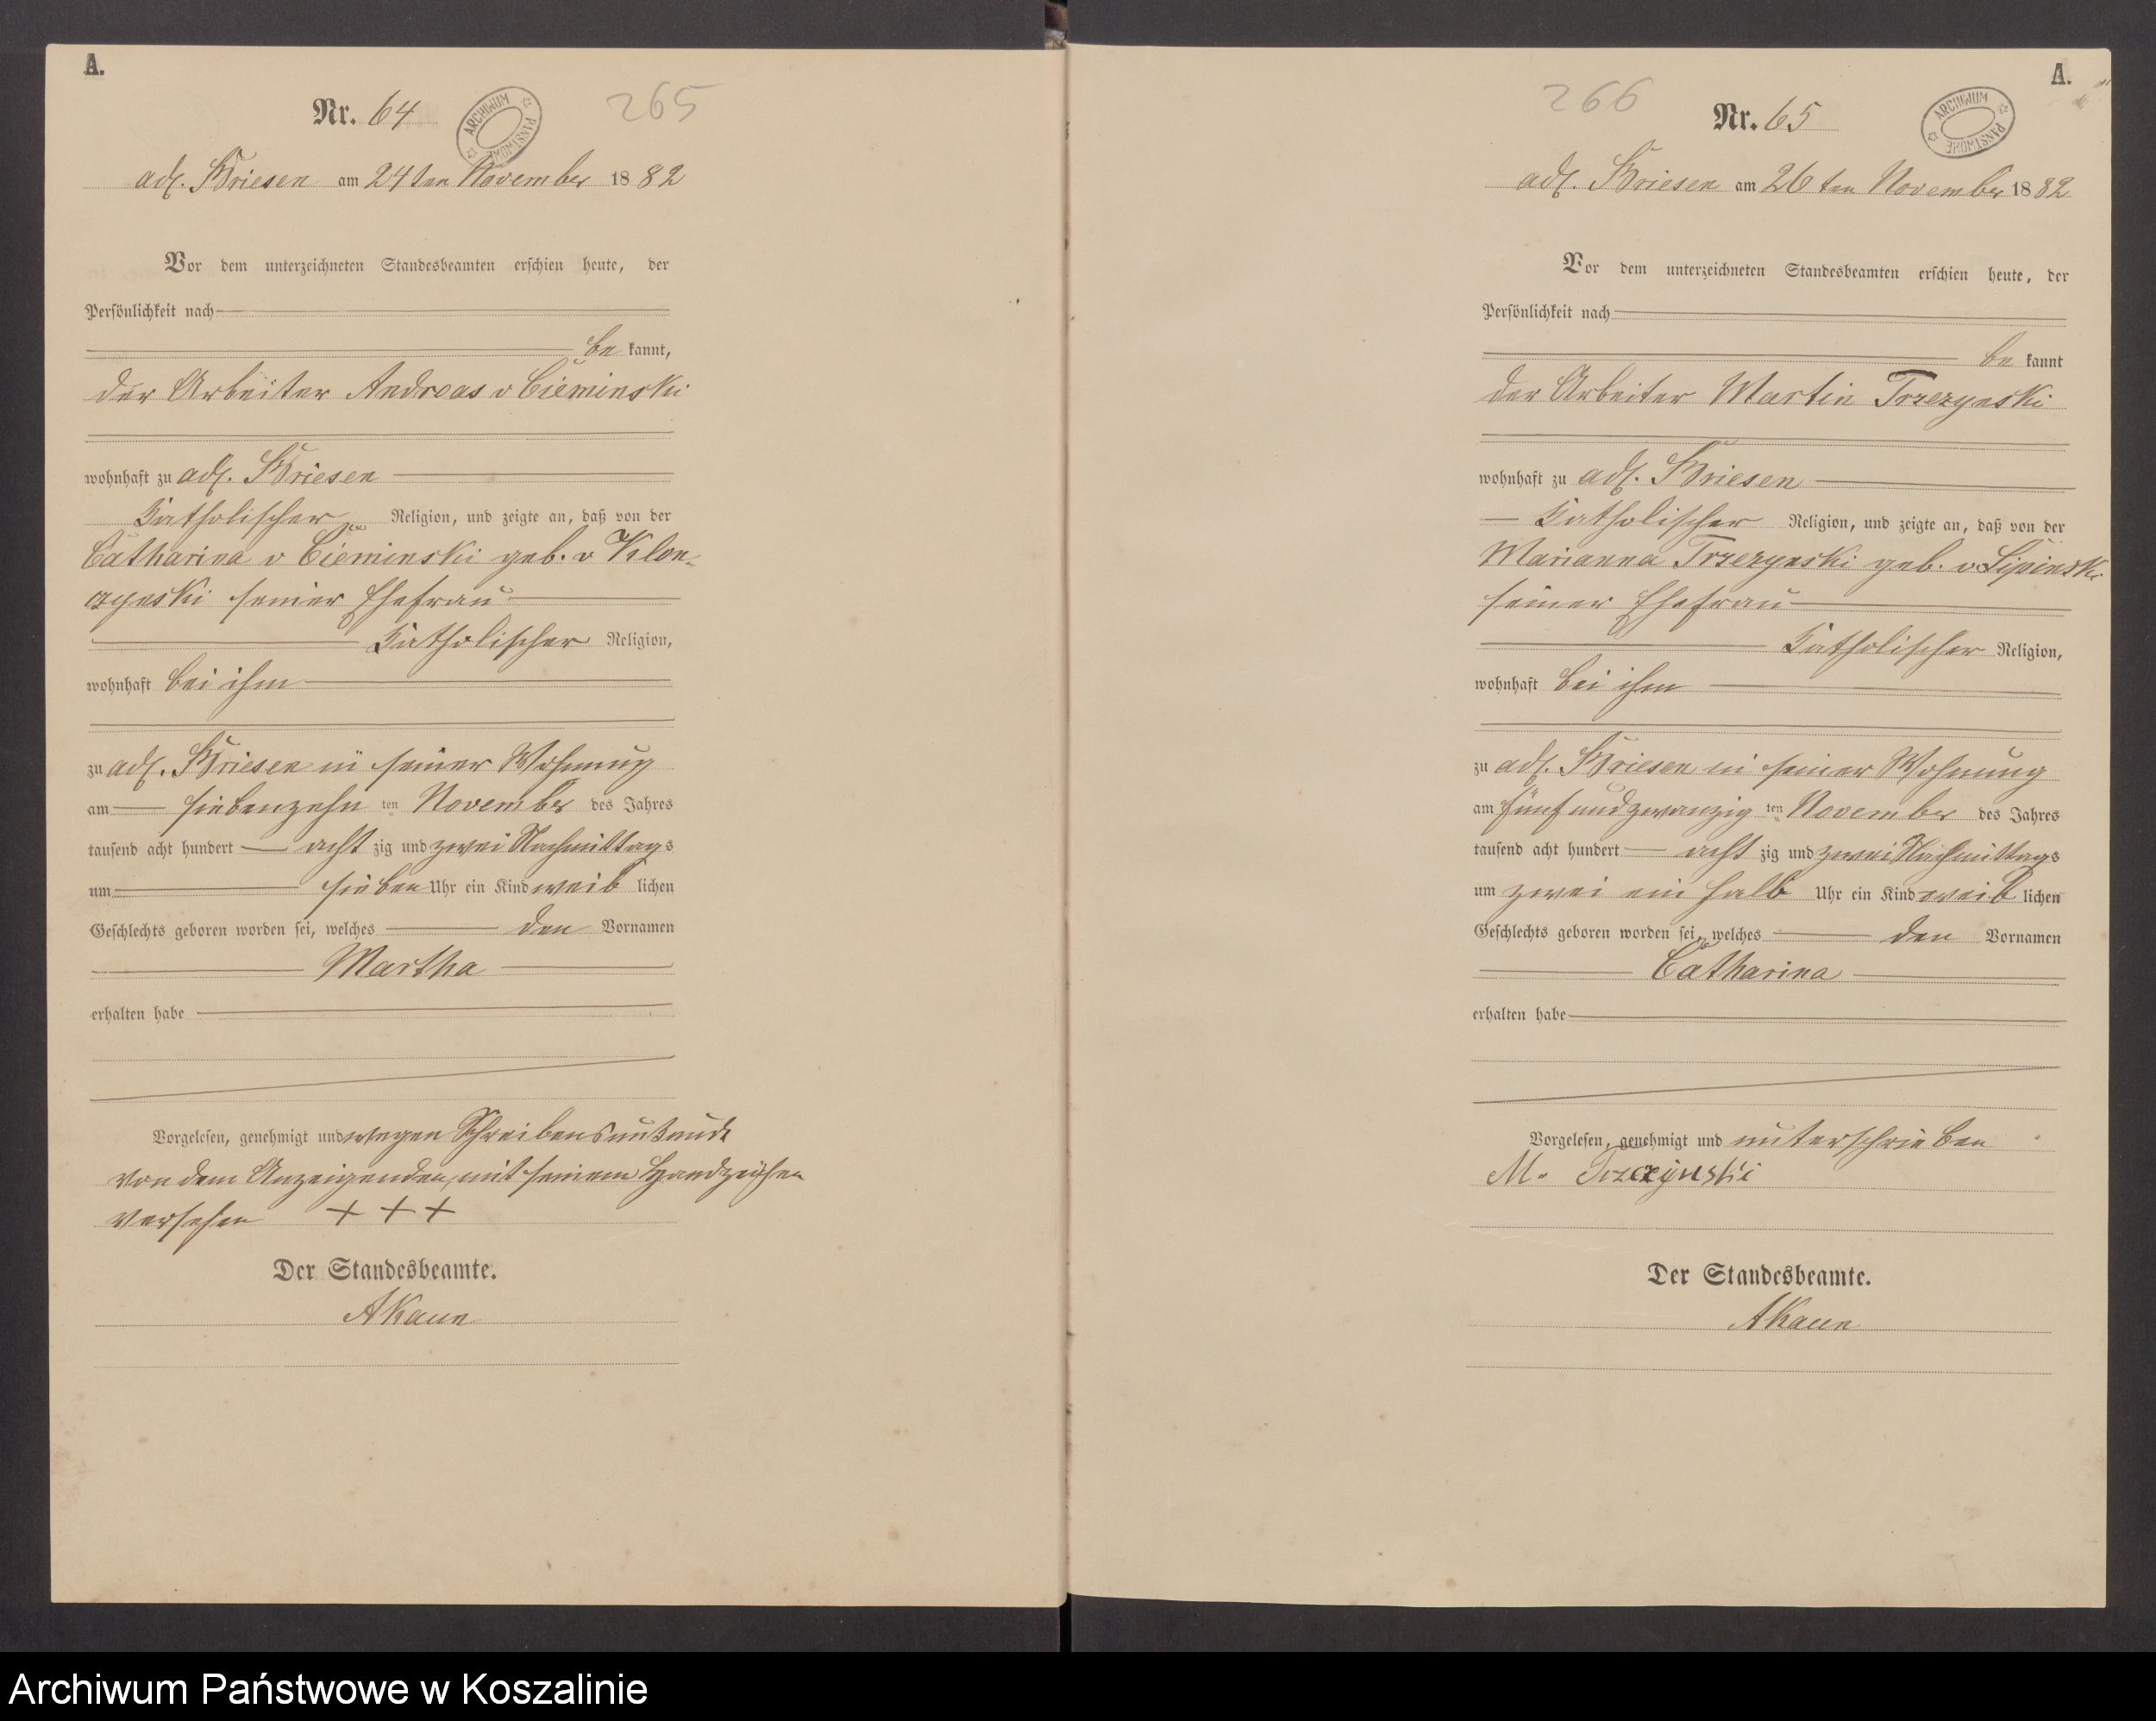 A.
Nr. 64
265
ARCHIWUM PAŃSTWOWE
adl. Briesen am 24ten November 1882
Vor dem unterzeichneten Standesbeamten erschien heute, der
Persönlichkeit nach
be kannt,
der Arbeiter Andreas v Cieminski
wohnhaft zu adl. Briesen
Katholischer Religion, und zeigte an, daß von der
Catharina v Cieminski geb. v Klon-
czynski seiner Ehefrau
Katholischer Religion,
wohnhaft bei ihm
zu adl. Briesen in seiner Wohnung
am siebenzehn ten November des Jahres
tausend acht hundert acht zig und zwei Nachmittags
um sieben Uhr ein Kind weib lichen
Geschlechts geboren worden sei, welches den Vornamen
Martha
erhalten habe
Vorgelesen, genehmigt und wegen Schreibensunkunde
von dem Anzeigenden mit seinem Handzeichen
versehen + + +
Der Standesbeamte.
A.
266
Nr. 65
ARCHIWUM PAŃSTWOWE
adl. Briesen am 26ten November 1882
Vor dem unterzeichneten Standesbeamten erschien heute, der
Persönlichkeit nach
be kannt
der Arbeiter Martin Trzezynski
wohnhaft zu adl. Briesen
Katholischer Religion, und zeigte an, daß von der
Marianna Trzezynski geb. v Lipinski
seiner Ehefrau
Katholischer Religion,
wohnhaft bei ihm
zu adl. Briesen in seiner Wohnung
am fünfundzwanzig ten November des Jahres
tausend acht hundert acht zig und zwei Nachmittags
um zwei ein halb Uhr ein Kind weib lichen
Geschlechts geboren worden sei, welches den Vornamen
Catharina
erhalten habe
Vorgelesen, genehmigt und unterschrieben
M. Trzezynski
Der Standesbeamte.
Archiwum Państwowe w Koszalinie